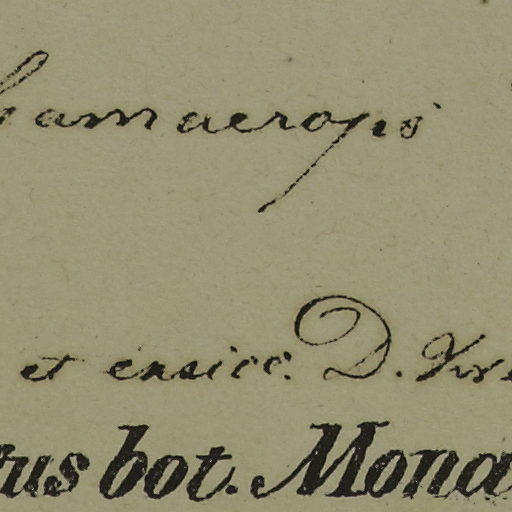 hamaerops
et exsicc. D.
tus bot. Mona